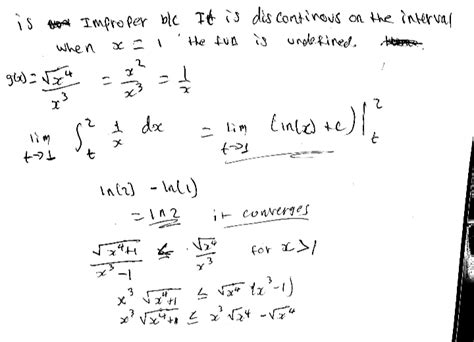 is Improper b/c It is discontinous on the interval
when x = 1 the fun is undefined.
g(x) = √x⁴ / x³ = x² / x³ = 1/x
lim t→1 ∫_t^2 1/x dx = lim t→1 (ln(x) + c) |_t^2
ln(2) - ln(1)
= ln 2 it converges
√(x⁴+1) / (x³-1) ≤ √x⁴ / x³ for x > 1
x³ √(x⁴+1) ≤ √x⁴ (x³-1)
x³ √(x⁴+1) ≤ x³ √x⁴ - √x⁴